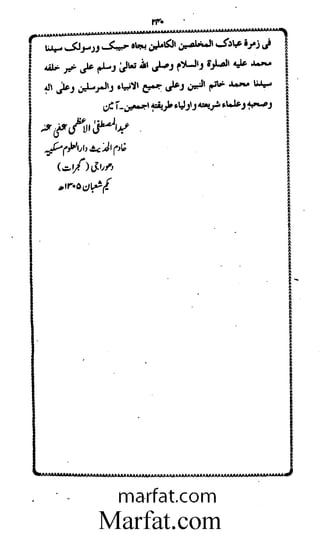 ۲۳۰
فی زمرة عبادک المخلصین الکاملین بجاه حبیبک ورسولک سیدنا
محمد علیه الصلوة والسلام وصلی الله تعالیٰ وسلم علی خیر خلقه
سیدنا محمد خاتم النبین وعلی جمیع الانبیاء والمرسلین وعلی اله
وصحبه وعلماء شریعته واولیاء طریقته اجمعین۔ آمین
عبدالمصطفیٰ الاعظمی عفی عنہ
خادم الحدیث دارالعلوم مسکینیہ
دھوراجی (گجرات)
یکم شعبان ۱۳۰۵ھ
marfat.com
Marfat.com